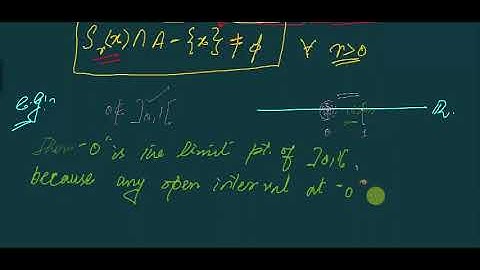 Sᵣ(x) ∩ A - {x} ≠ ϕ ∀ r>0
e.g. in
0 ∉ ]0,1[
R.
0 1
Then "0" is the limit pt. of ]0,1[,
because any open interval at "0"